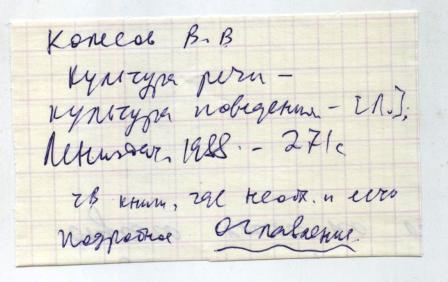 Колесов В.В
Культура речи –
культура поведения. – [Л.];
Лениздат. 1988. – 271с
книги, где и есть
подробное Оглавление.